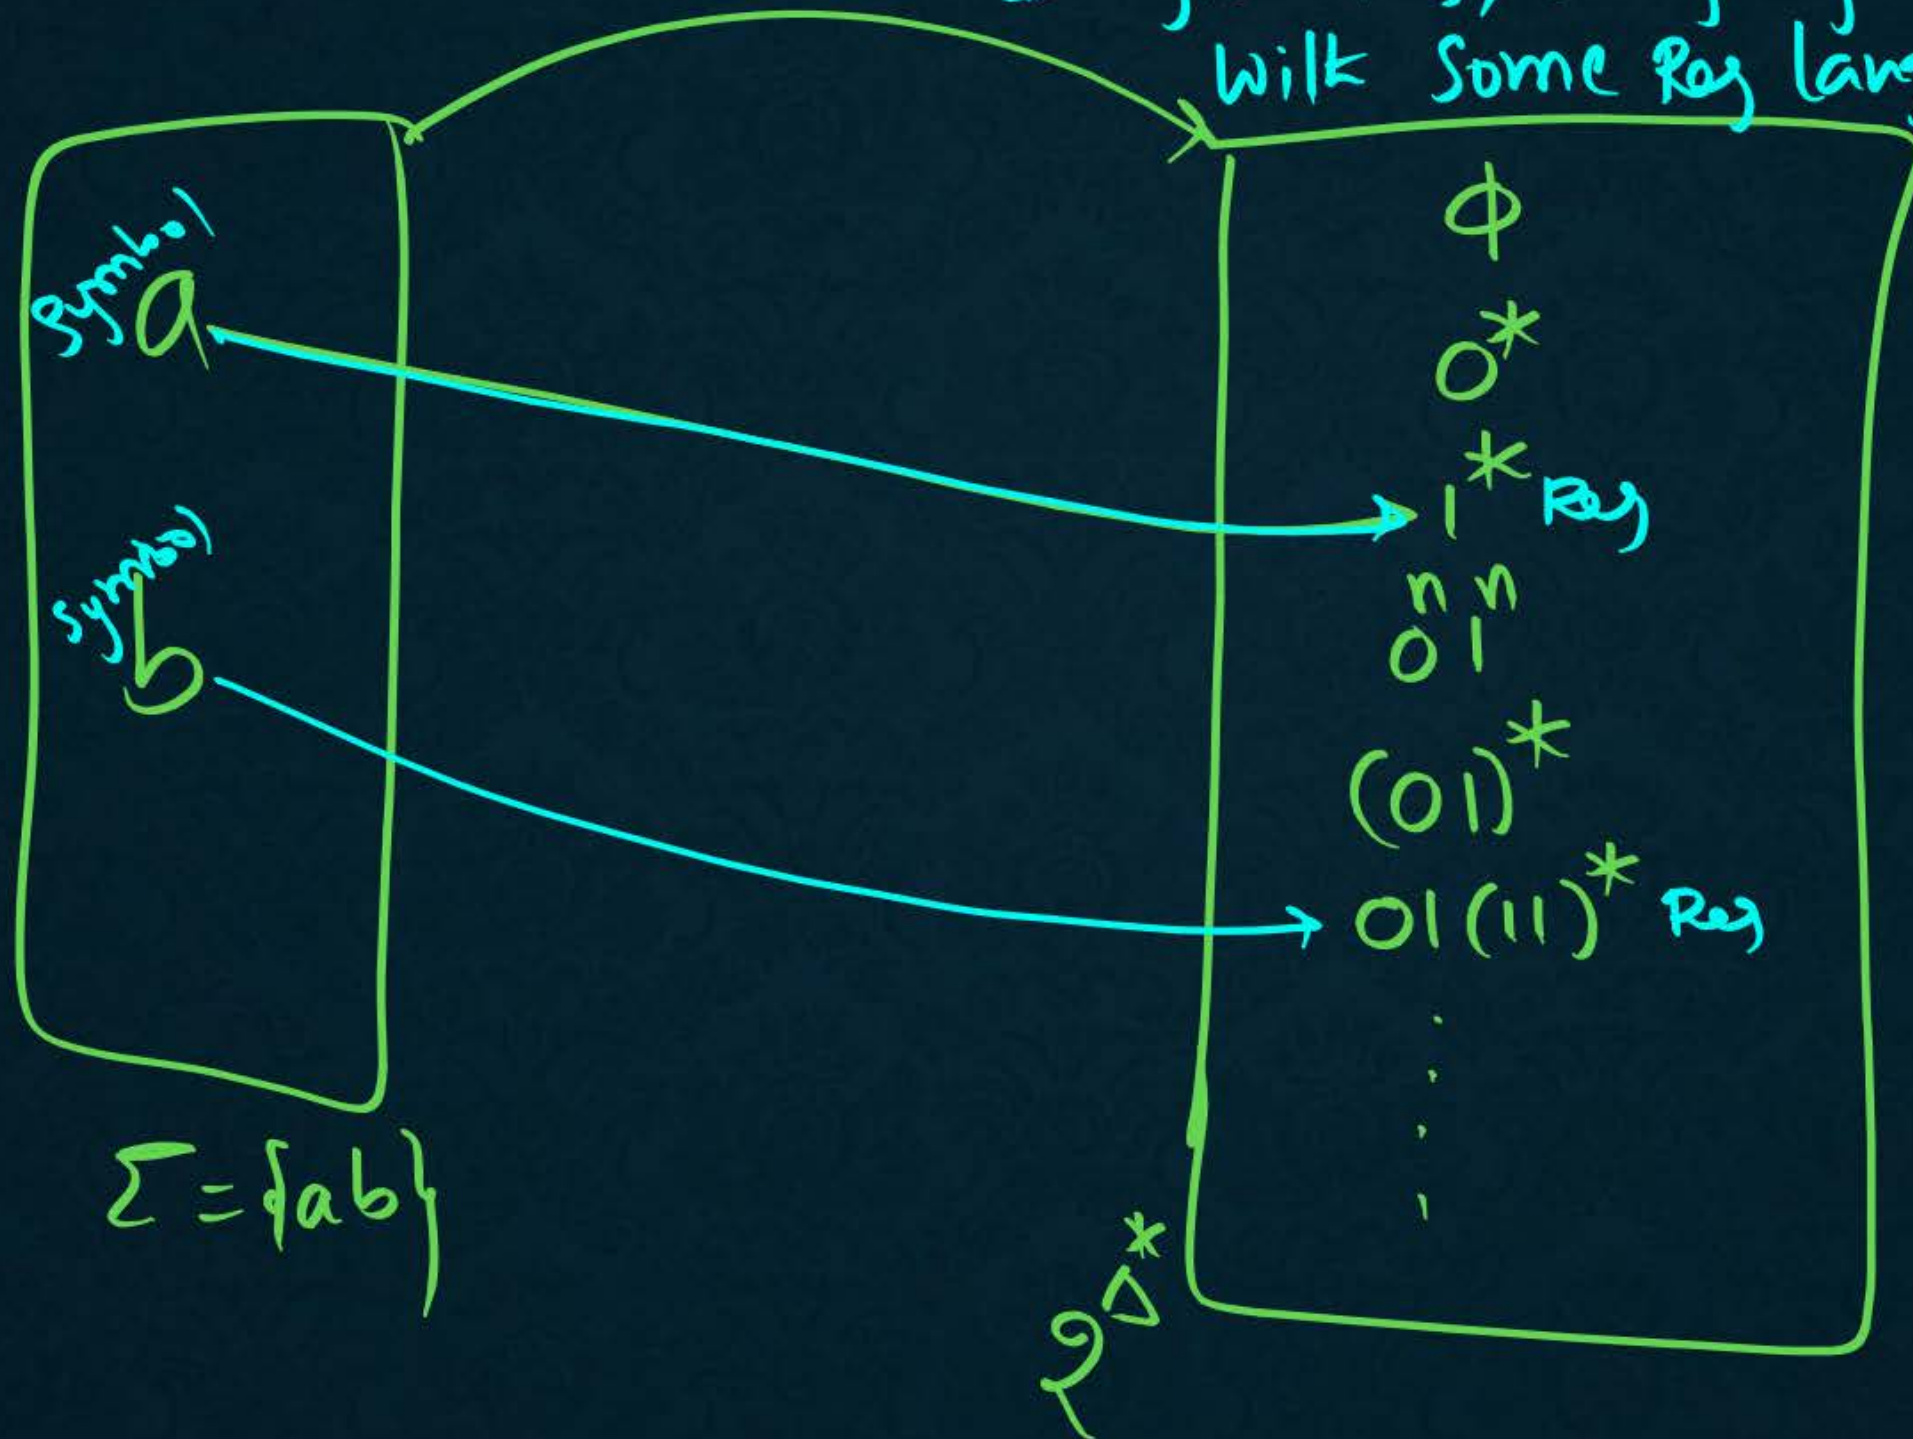 Wilt Some Reg lang
Symbol
a
Symbol
b
ϕ
0*
1* Reg
0ⁿ1ⁿ
(01)*
01(11)* Reg
Σ = {ab}
2^Δ*